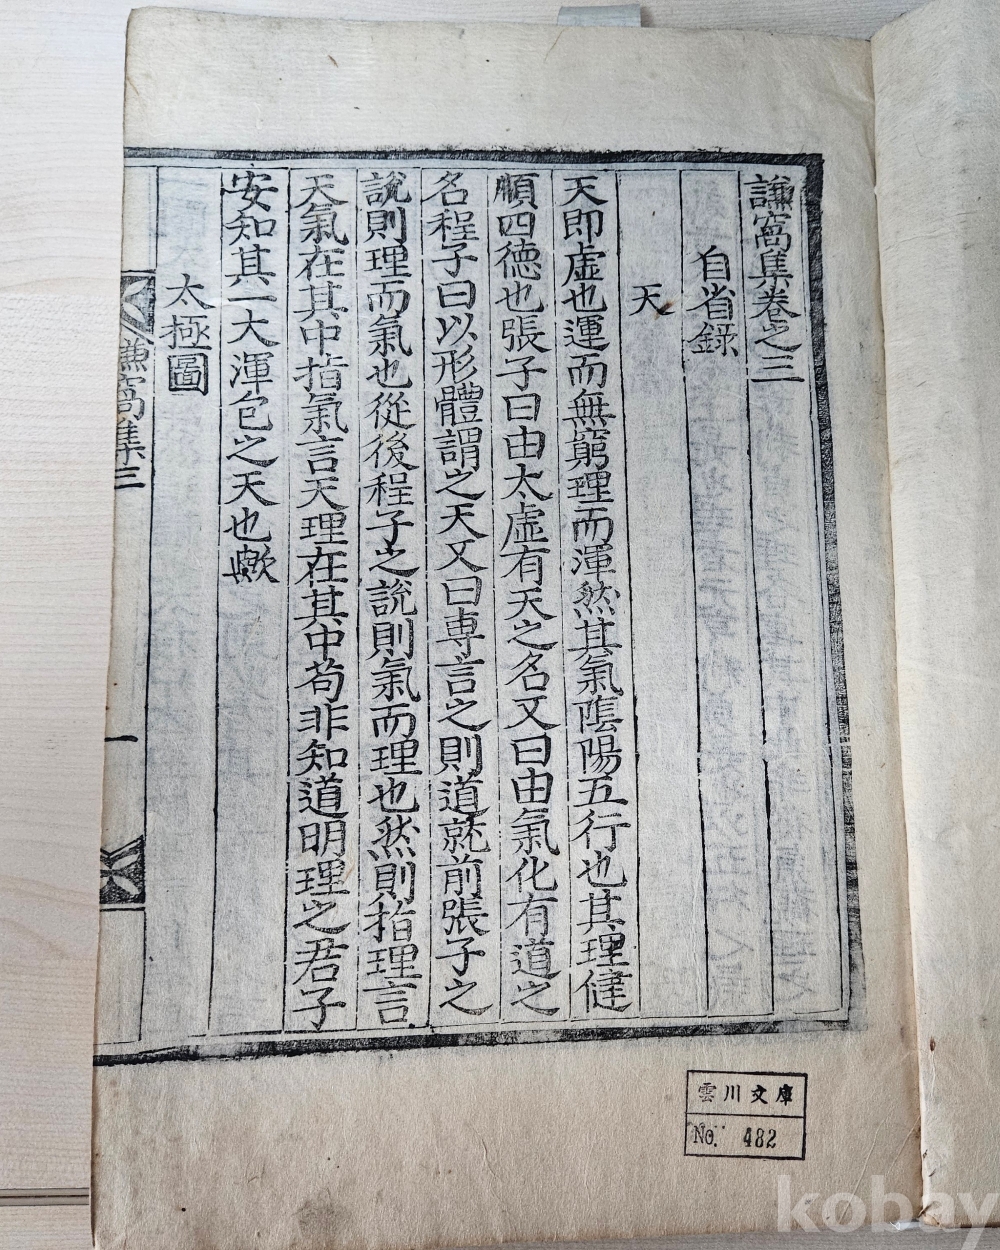 謙窩集卷之三
自省錄
天
天即虛也運而無窮理而渾然其氣陰陽五行也其理健
順四德也張子曰由太虛有天之名又曰由氣化有道之
名程子曰以形體謂之天又曰專言之則道就前張子之
說則理而氣也從後程子之說則氣而理也然則指理言
天氣在其中指氣言天理在其中苟非知道明理之君子
安知其一大渾包之天也歟
太極圖
謙窩集三
一
雲川文庫
No. 482
kobay